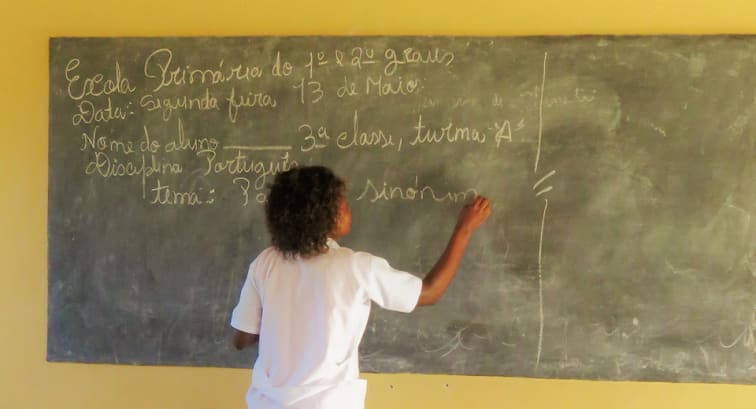 Escola Primária do 1º e 2º graus
Data: Segunda feira 13 de Maio.
Nome do aluno______ 3ª classe, turma-"A"
Disciplina Português
tema: sinónim